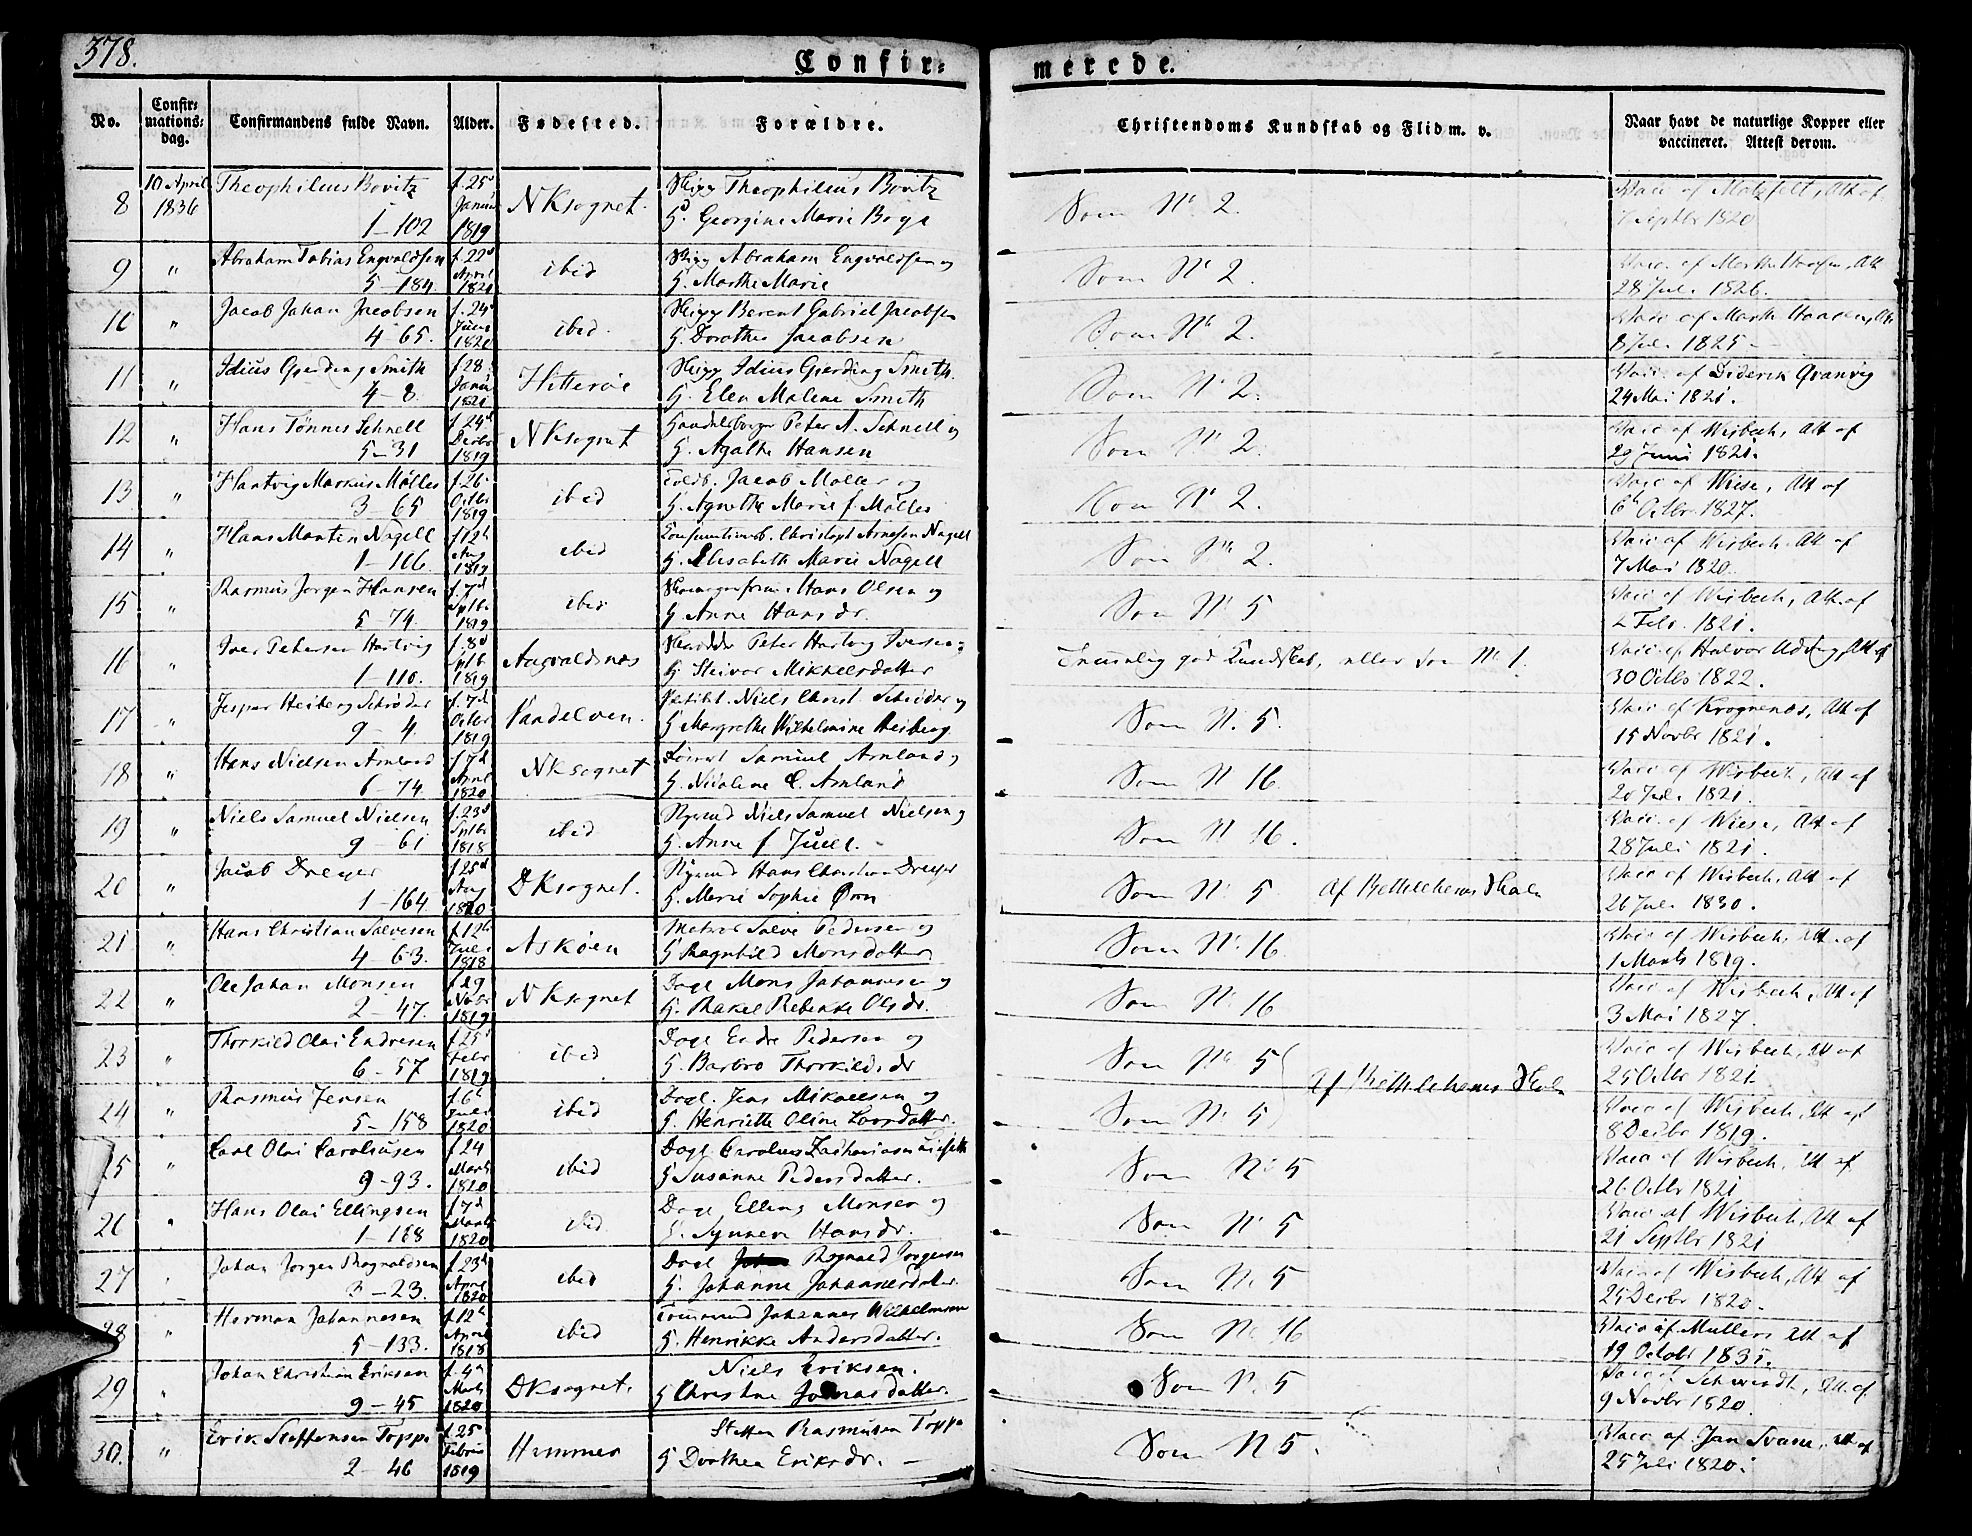 378.
Confir: merede.
No.
Confir: mations: dag.
Confirmandens fulde Navn.
Alder.
Fødested.
Forældre.
Christendoms Kundskab og Flid m. v.
Naar havt de naturlige Kopper eller vaccineret. Attest derom.
8 10 April 1836 Theophileus Bovitz 1–102 f. 25 Januar 1819 NKsognet. Theophileus Bovitz H. Georgine Marie Som No 2. Vacc af Att af Septbr 1820
9 " Abraham Tobias Engvaldsen 5–184. f. 22d April 1821 ibid Abraham Engvaldsen og H. Marthe Marie Som No 2. Vacc. af Att 28 Juli 1826.
10 " Jacob Johan Jacobsen 4 65. f. 24d 1820 ibid. Berent Gabriel Jacobsen H. Dorothea Jacobsen Som No 2 Vacc af Att 8 Juli 1825
11 " Idius Gjerding Smith 4–8. f. 28 Janu 1821 Hitterøe Idius Gjerding Smith. H. Elen Malene Smith Som No 2. Vacc. af Diderik Qvanvig 24 Mai 1821.
12 " Hans Tønnes Schnell 5–31 f. 24d Decbr 1819 NKsognet Handelsborger Peter A. Schnell og H. Agathe Hansen Som No 2. Vacc af Wisbech, Att af 29 Juni 1821.
13 " Hartvig Markus Møller 3–65 f. 26 Octbr 1819 ibid Toldb. Jacob Møller og H. Agnethe Marie f. Møller Som No 2. Vacc af Wiese, Att af 6 Octbr. 1827.
14 " Hans Martin Nagell 1–166. f 12h Aug 1819 ibid Christoph Arnesen Nagell H. Elisabeth Marie Nagell Som No 2. Vacc af Wisbech Att af 7 Mai 1820.
15 " Rasmus Jørgen Hansen 5–74. f. 7d Sptb. 1819 ibid Hans Olsen og H. Anne Hansdr. Som No 5 Vacc af Wisbech, Att. af 2 Febr. 1821.
16 " Iver Petersen Hartvig 1–110. f. 8d Sptb 1819 Augvaldsnæs Peter Hartvig Iversen og H. Steivor Mikkelsdatter Temmelig god Kundskab, eller som No 1. Vacc. af Halvor Att af 30 Octbr 1822.
17 " Jesper Heiberg Schrøder 9–4. f. 7d Octbr 1819 Niels Christ. Schrøder og H Margrethe Wilhelmine Heiberg Som No. 5. Vacc af Krognenæs, Att af 15 Novbr 1821.
18 " Hans Nielsen Amland 6–74. f. 7d April 1820 NKsognet Samuel Amland og H. Nicoline C. Amland Som No 16. Vacc af Wisbech, Att af 20 Juli 1821.
19 " Niels Samuel Nielsen 9–61 f. 23d Sptb. 1818 ibid Niels Samuel Nielsen og H. Anne f Juell. Som No 16. Vacc af Wiese, Att af 28 Juli 1821.
20 " Jacob Dreyer 1–164. f 25d Aug 1820 DKsognet. Hans Christian Dreyer H. Marie Sophie Ørn Som No. 5 af Bethlehems Skole Vacc af Wisbech, Att af 26 Juli 1830.
21 " Hans Christian Salvesen 4 63. f 12h Juli 1818 Askøen Matros Salve Pedersen og H Ragnhild Monsdatter Som No. 16 Vacc af Wisbech, Att. af 1 Marts 1819.
22 " Ole Johan Monsen 2–47. f 29 Novbr 1819 NKsognet Dagl Mons Johannesen og H. Rakel Rebekke Olsdr. Som No 16 Vacc af Wisbech, Att af 3 Mai 1827.
23 " Thorkild Olai Endresen 6–57 f 25 Febr 1819 ibid Dagl Endre Pedersen og H. Barbro Thorkildsdr Som No 5 af Bethlehems Skole Vacc af Wisbech, Att af 25 Octbr 1821.
24 " Rasmus Jensen 5–158 f. 6h Juli 1820 ibid Dagl. Jens Mikaelsen og H. Henriette Oline Larsdatter. Som No. 5 Vacc af Wisbech, Att af 8 Decbr 1819.
25 " Carl Olai Caroliusen 9–93. f 24 Marts 1820 ibid Dagl Carolus Zachariasen H Susanne Pedersdatter. Som No. 5 Vacc af Wisbech, Att af 26 Octbr 1821
26 " Hans Olai Ellingsen 1–168 f 7d Marts 1820 ibid Dagl Elling Monsen og H. Synneve Hansdr. Som No 5 Vacc af Wisbech, Att af 21 Septbr 1821
27 " Johan Jørgen Ragnaldsen 3–23. f. 23d April 1820 ibid Dagl Ragnald Jørgensen H. Johanne Johannesdatter Som No 5 Vacc af Wisbech, Att af 25 Decbr 1820.
28 " Herman Johannesen 5–133. f. 12h April 1818 ibid Tømmermd Johannes Wilhelmsen H. Henrikke Andersdatter. Som No 16 Vacc af Müller, Att af 19 Octobr 1835.
29 " Johan Christian Eriksen 9–45 f. 4h Marts 1820 DKsognet. Niels Eriksen. H Christine Jonasdatter. Som No. 5 Vacc af Schwindt, Att. af 9 Novbr 1820.
30. " Erik Steffensen Toppe 2–46 f. 25 Febr 1819 Hammer Steffen Rasmusen Toppe H Dorthea Eriksdr. Som No 5. Vacc af Jan Svane, Att af 25 Juli 1820.